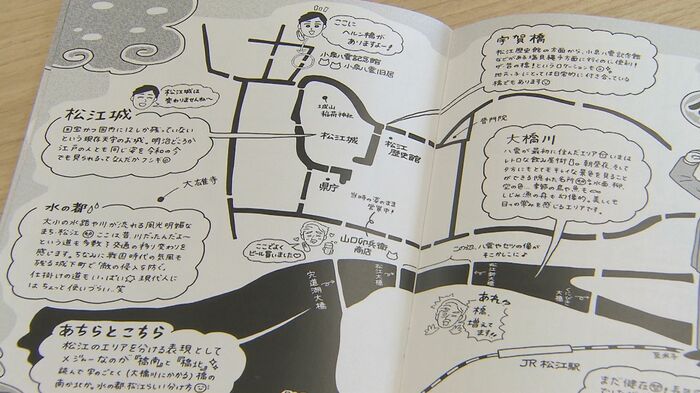 ここに
ヘルン橋が
ありますよー!
小泉八雲記念館
小泉八雲旧居
松江城は
変わりませんね〜
松江城
国宝かつ国内に12しか残っていない
という現存天守のお城。明治どうか
江戸の人とも同じ姿を令和の今
でも見られるってなんだかフシギ
城山
稲荷神社
松江城
松江
歴史館
県庁
大雄寺
水の都
大小の水路や川が流れる風光明媚な
まち・松江 ここは昔、川だったんだよー
という道も多数で交通の移り変わりを
感じます。ちなみに戦国時代の気風も
残る城下町で「敵の侵入を防ぐ」
仕掛けの道もいっぱい 現代人に
はちょっと使いづらい。笑
当時の姿のまま
営業中!
山口卯兵衛
商店
ここでよく
ビール買いました
宍道湖大橋
松江大橋
あちらとこちら
松江のエリアを分ける表現として
メジャーなのが"橋南"と"橋北"
読んで字のごとく(大橋川にかかる)橋の
南か北か。水の都松江らしい分け方
宇賀橋
松江歴史館の方面から、小泉八雲記念館
などがある塩見縄手方面に行くのに便利!
橋もあります
普門院
大橋川
八雲が最初に住んだエリア いまは
レトロな飲み屋街も。朝昼夜、そして
夕方にもとてもキレイな景色を見ること
ができる隠れた名所 な水面、柳、
空の色…季節の鳥や魚も
しじみ漁の舟も幻想的。美しくも
日々の営みを感じるエリアです。
この辺、八雲やセツの像が
そこかしこに♪
新大橋
くにびき
大橋
あれっ
橋
増えてます!!
JR 松江駅
至米子
まだ健在